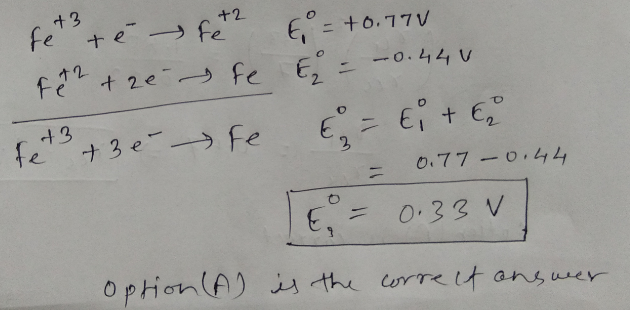 Fe⁺³ + e⁻ → Fe⁺² E₁° = +0.77V
Fe⁺² + 2e⁻ → Fe E₂° = -0.44 V
Fe⁺³ + 3e⁻ → Fe E₃° = E₁° + E₂°
= 0.77 - 0.44
E₃° = 0.33 V
Option(A) is the correct answer